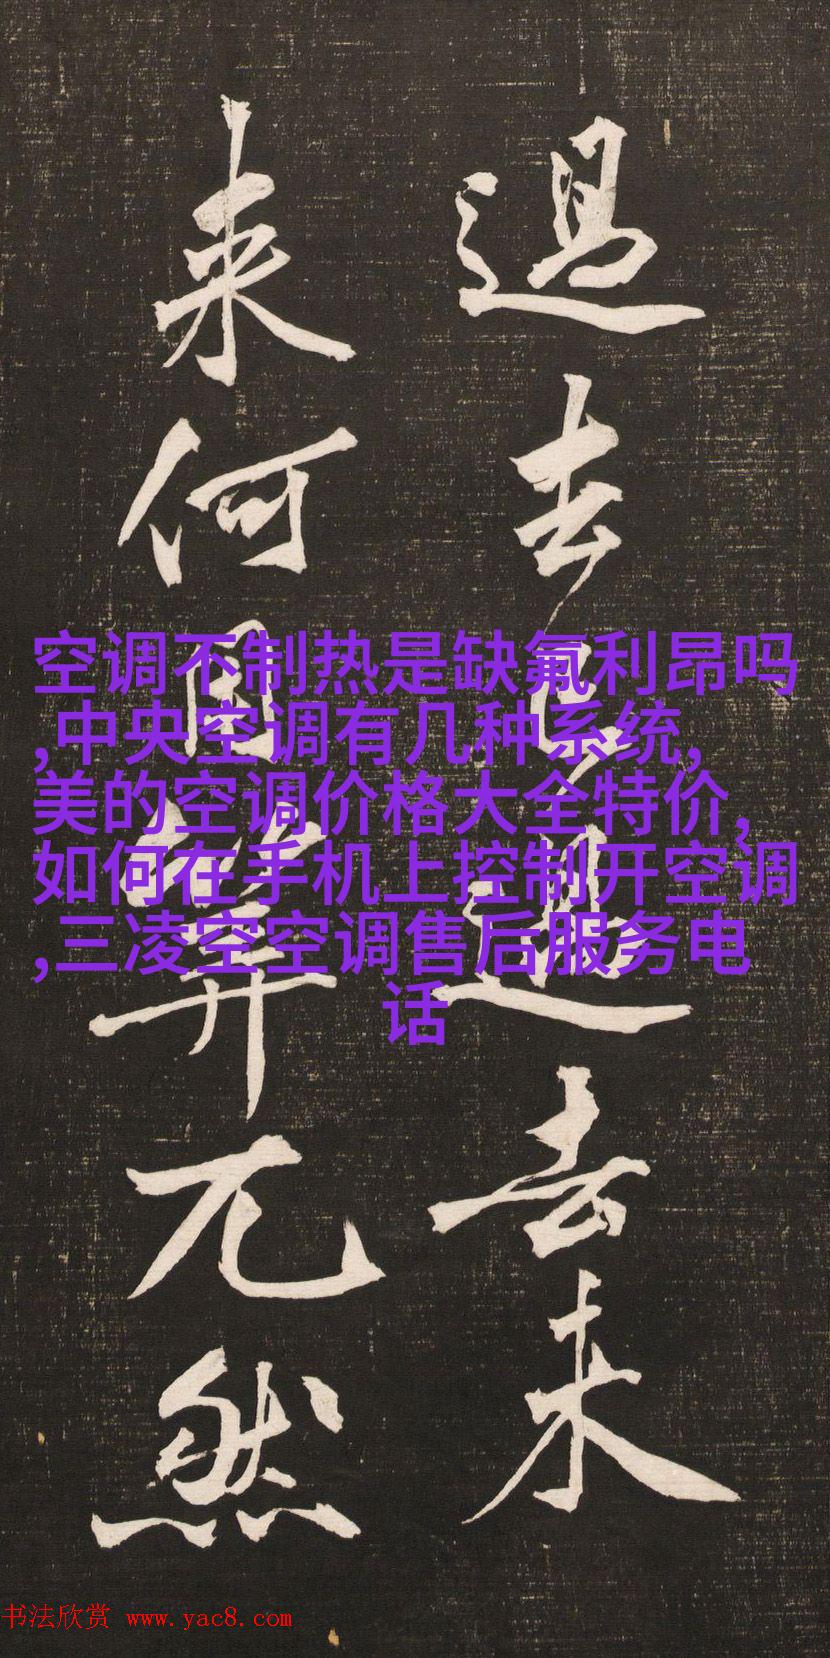 過去已過去未
来何用筭兀然
空调不制热是缺氟利昂吗
,中央空调有几种系统,
美的空调价格大全特价,
如何在手机上控制开空调
,三凌空空调售后服务电
话
书法欣赏 www.yac8.com